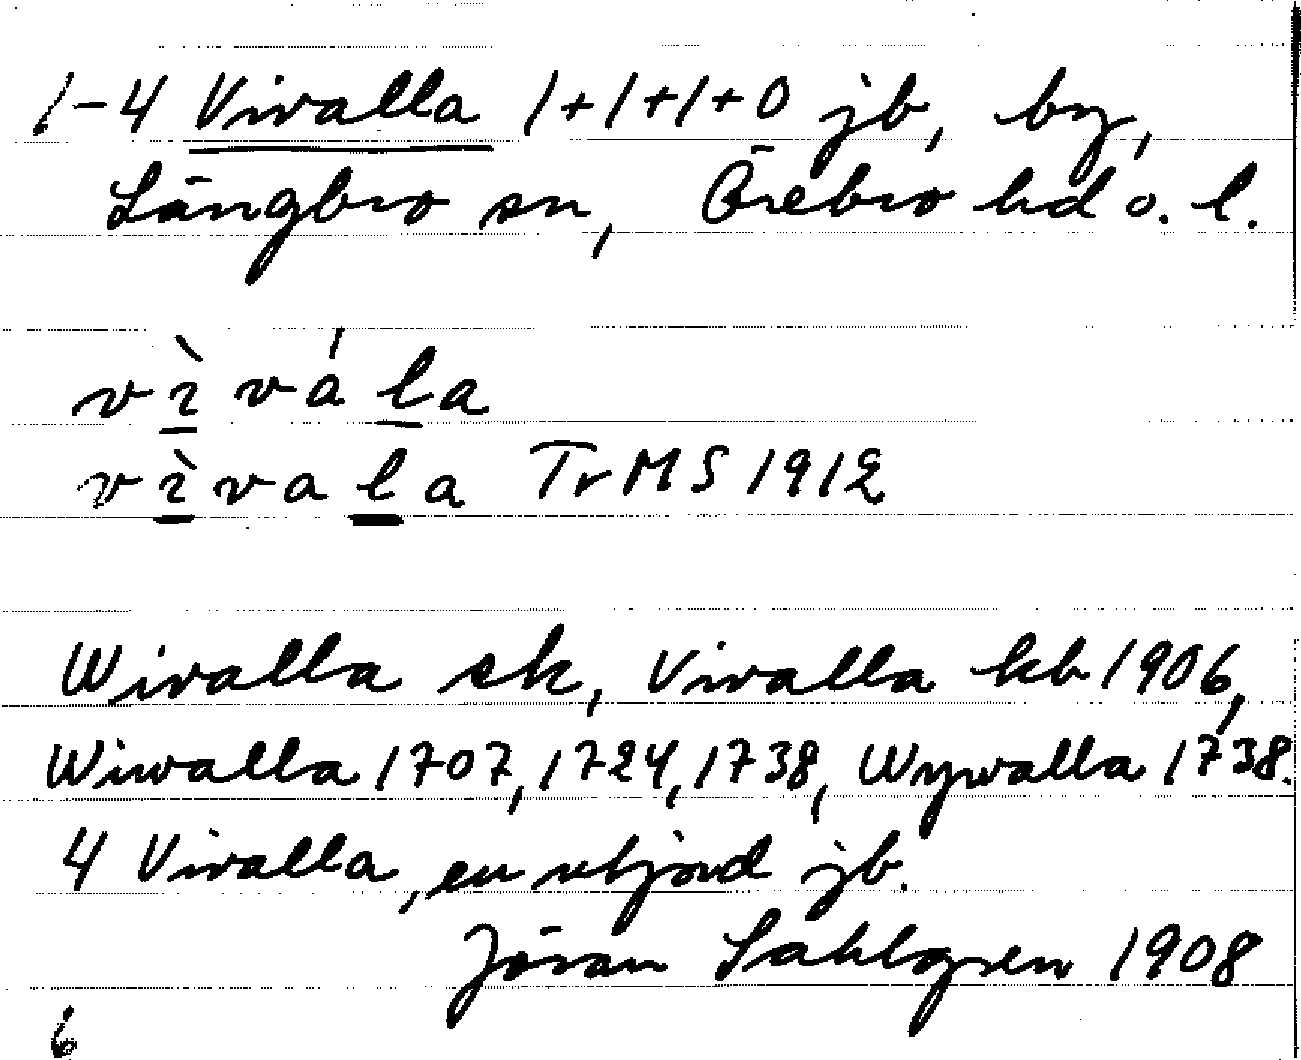 1-4 Vivalla 1+1+1+0 jb, by,
Längbro sn, Örebro hd o. l.
vìvála
vìvala TrMS 1912
Wivalla sk, Vivalla kb 1906,
Wiwalla 1707, 1724, 1738, Wywalla 1738.
4 Vivalla, en utjord jb.
Jöran Sahlgren 1908
6